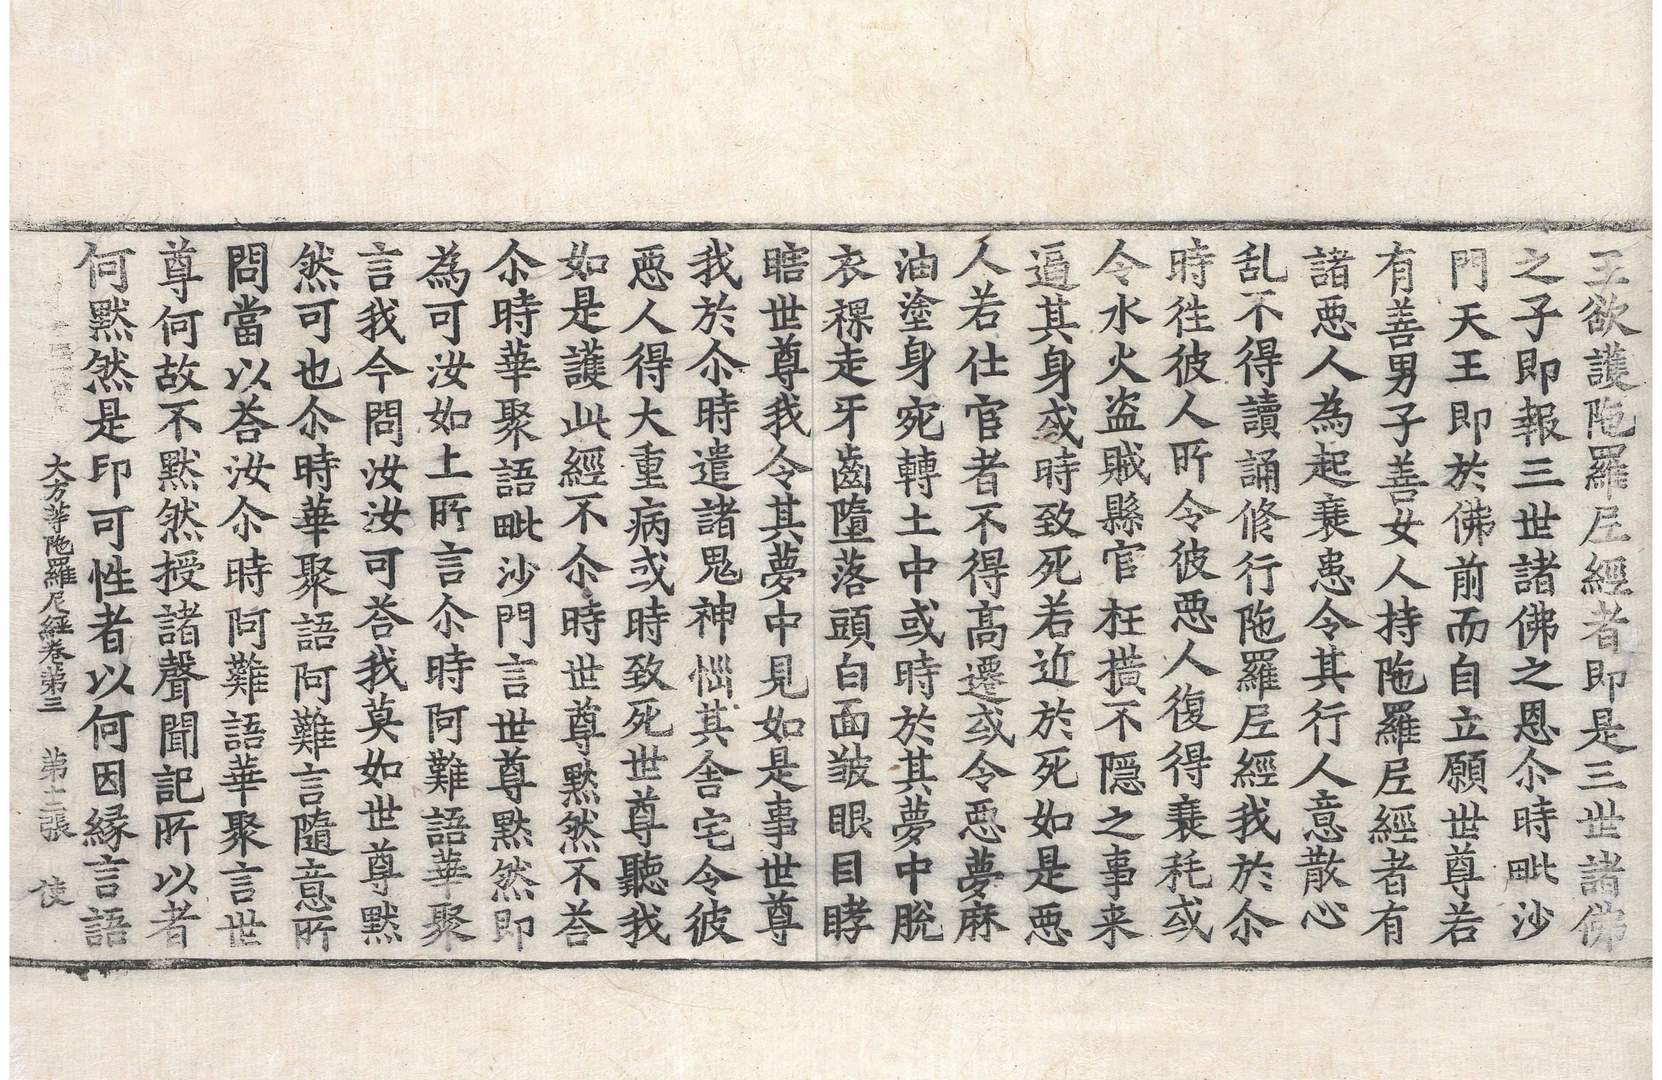 王欲護陁羅𡰱經者即是三世諸佛
之子即報三世諸佛之恩尒時毗沙
門天王即於佛前而自立願世尊若
有善男子善女人持陁羅𡰱經者有
諸悪人為起衰患令其行人意散心
乱不得讀誦修行陁羅𡰱經我於尒
時徃彼人所令彼悪人復得衰耗或
令水火盗賊縣官枉撗不隱之事来
逼其身或時致死若近於死如是悪
人若仕官者不得高遷或令悪夢麻
油塗身宛轉土中或時於其夢中脫
衣裸走牙齒墮落頭白面皺眼目𥈞
瞎世尊我令其夢中見如是事世尊
我於尒時遣諸鬼神惱其舍宅令彼
悪人得大重病或時致死世尊聽我
如是護此經不尒時世尊黙然不荅
尒時華聚語毗沙門言世尊黙然即
為可汝如上所言尒時阿難語華聚
言我今問汝汝可荅我莫如世尊黙
然可也尒時華聚語阿難言隨意所
問當以荅汝尒時阿難語華聚言世
尊何故不黙然授諸聲聞記所以者
何黙然是印可性者以何因縁言語
大方等陁羅尼經卷第三　第十二張　使